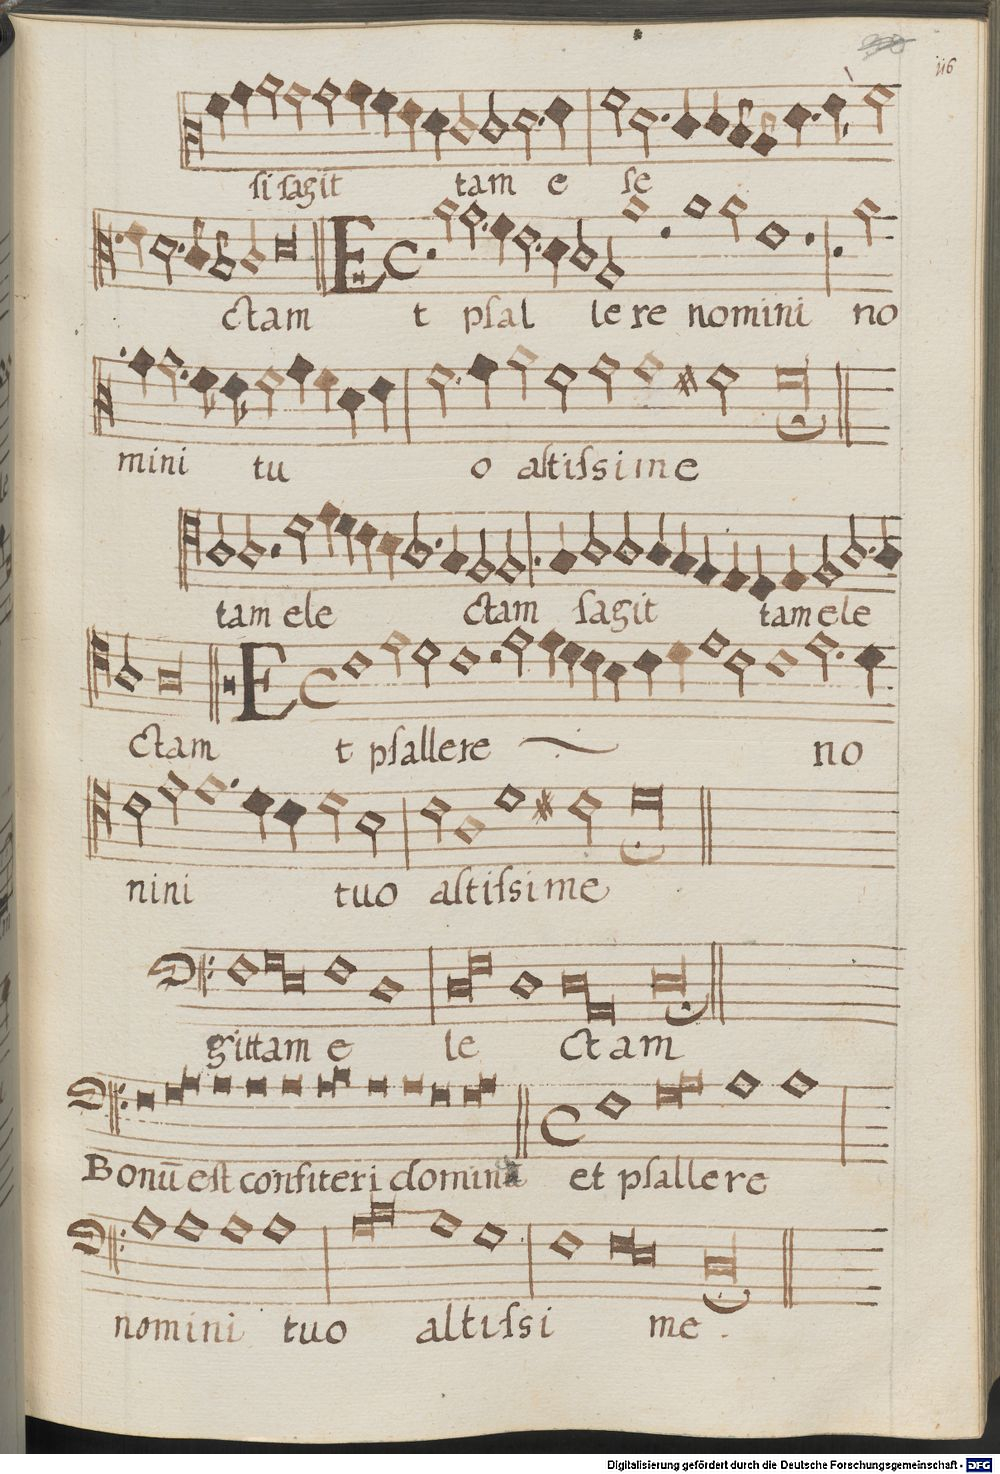 116
si sagit tam e le
ctam Et psal lere nomini no
mini tu o altissime
tam ele ctam sagit tam ele
ctam Et psallere no
nini tuo altissime
gittam e le ctam
Bonū est confiteri domino et psallere
nomini tuo altissi me.
Digitalisierung gefördert durch die Deutsche Forschungsgemeinschaft - DFG